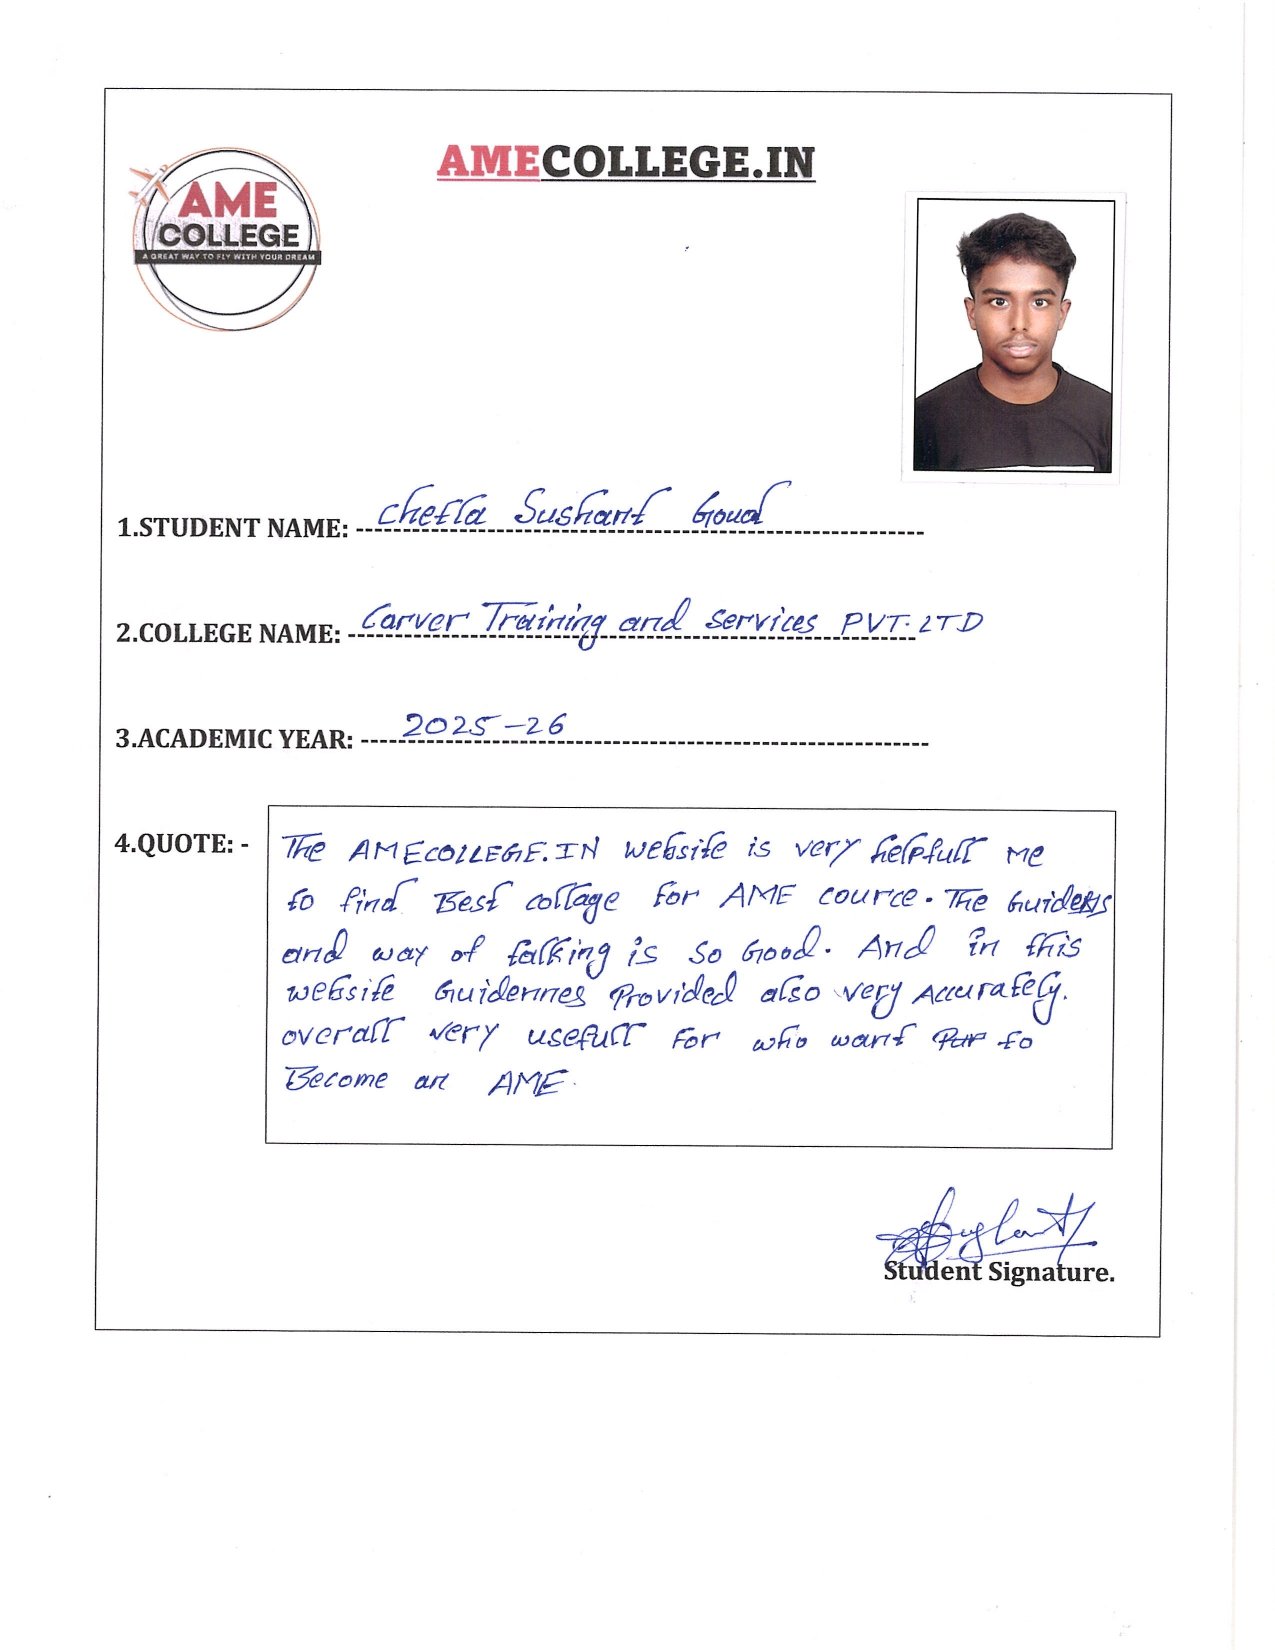 AMECOLLEGE.IN
AME
COLLEGE
A GREAT WAY TO FLY WITH YOUR DREAM
1.STUDENT NAME: Chetla Sushant Goud
2.COLLEGE NAME: Carver Training and services PVT. LTD
3.ACADEMIC YEAR: 2025-26
4.QUOTE: -
The AMECOLLEGE.IN website is very helpfull me
to find Best collage for AME cource. The Guiders
and way of talking is so Good. And in this
website Guidennes Provided also very Accurately.
overall very usefull For who want to
Become an AME.
Sushant
Student Signature.